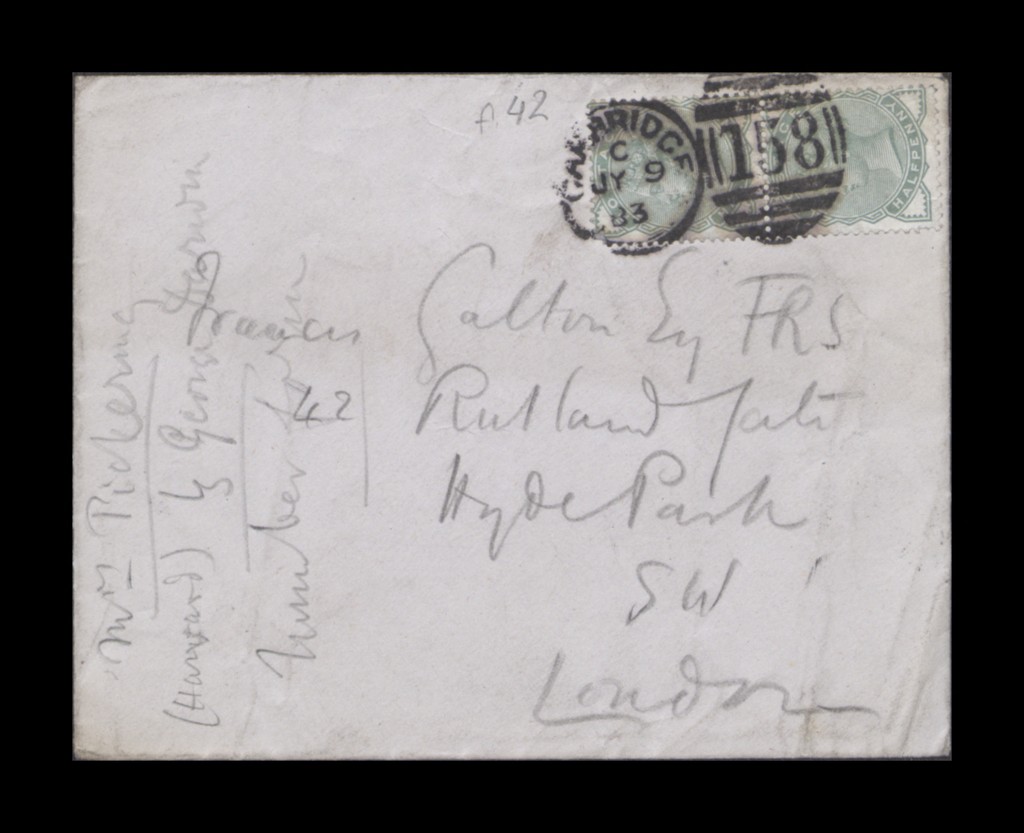 A 42
CAMBRIDGE
C
JY 9
83
158
HALFPENNY
Francis Galton Esq FRS
42 Rutland Gate
Hyde Park
SW
London
Mrs Pickering
(Harvard) by George Darwin
Number form